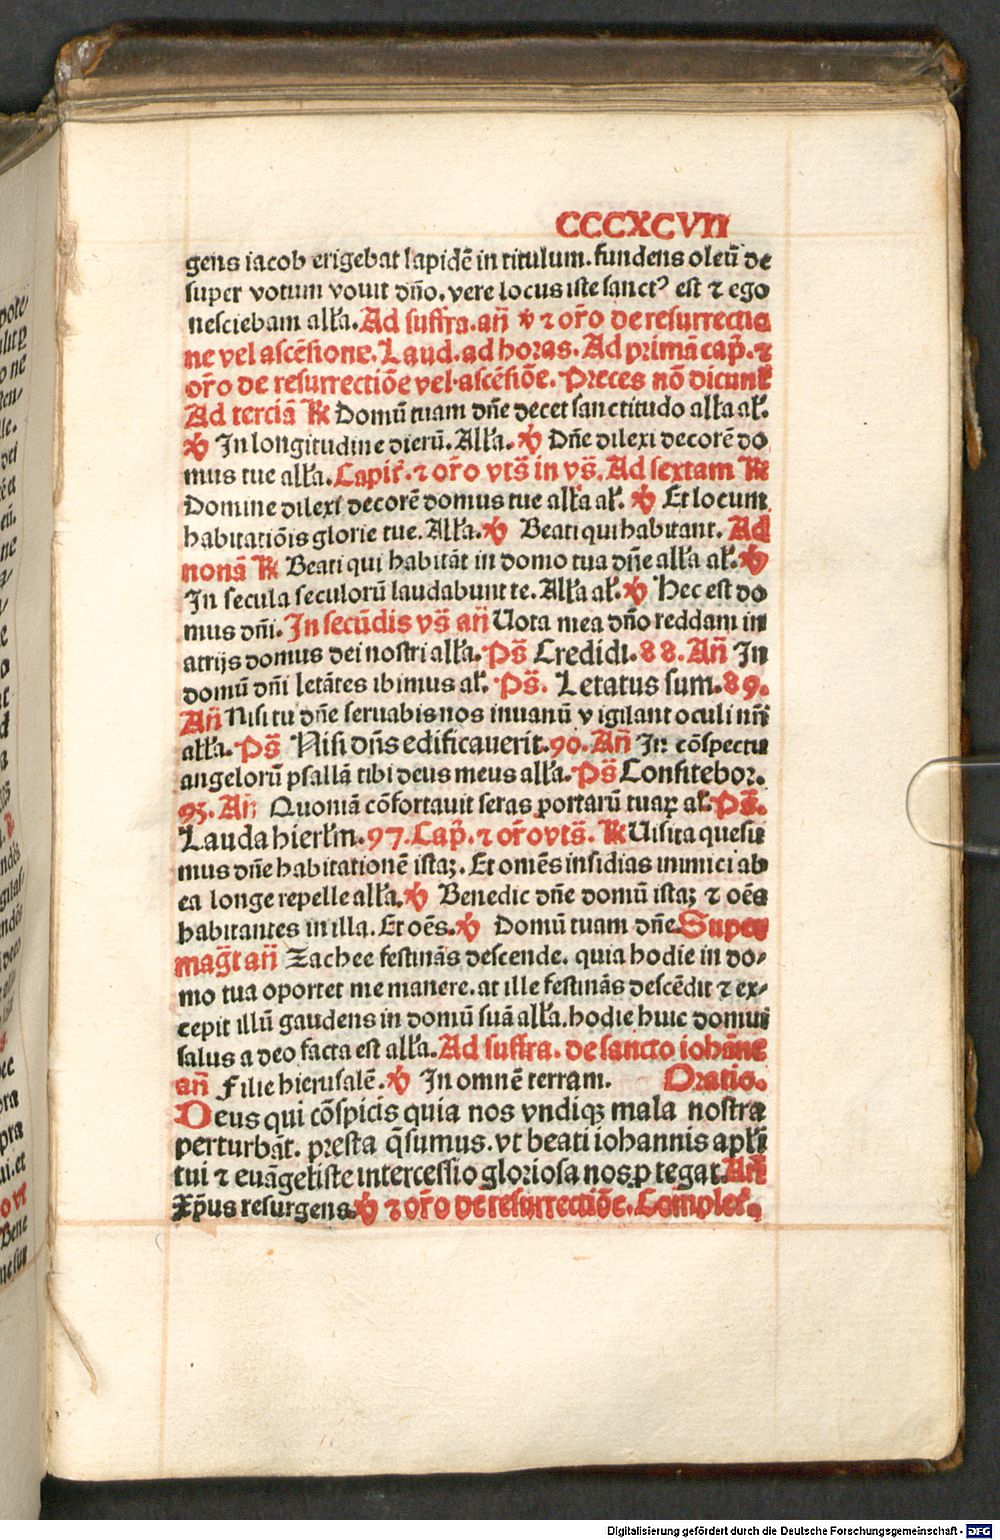 CCCXCVII
gens iacob erigebat lapidē in titulum. fundens oleū de
super votum vouit dño. vere locus iste sanct⁹ est ⁊ ego
nesciebam alľa. Ad suffra. añ ℣ ⁊ oro de resurrectio
ne vel ascēsione. Laud. ad horas. Ad primā cap̄. ⁊
oro de resurrectiōe vel ascēsiōe. Preces nō dicunt
Ad terciā ℟ Domū tuam dñe decet sanctitudo alľa aľ.
℣ In longitudine dierū. Alľa. ℣ Dñe dilexi decorē do
mus tue alľa. Capit̄. ⁊ oro vts̄ in vs̄. Ad sextam ℟
Domine dilexi decorē domus tue alľa aľ. ℣ Et locum
habitatiōis glorie tue. Alľa. ℣ Beati qui habitant. Ad
nonā ℟ Beati qui habitāt in domo tua dñe alľa aľ. ℣
In secula seculorū laudabunt te. Alľa aľ. ℣ Hec est do
mus dñi. In secūdis vs̄ añ Uota mea dño reddam in
atrijs domus dei nostri alľa. Ps̄ Credidi. 88. Añ In
domū dñi letātes ibimus aľ. Ps̄. Letatus sum. 89.
Añ Nisi tu dñe seruabis nos inuanū vigilant oculi nr̄i
alľa. Ps̄ Nisi dñs edificauerit. 90. Añ In cōspectu
angelorū psallā tibi deus meus alľa. Ps̄ Confitebor.
95. Añ Quoniā cōfortauit seras portarū tuaꝝ aľ. Ps̄.
Lauda hierľm. 97. Cap̄. ⁊ oro vts̄. ℟ Uisita quesu
mus dñe habitationē istaꝫ. Et omēs insidias inimici ab
ea longe repelle alľa. ℣ Benedic dñe domū istaꝫ ⁊ oēs
habitantes in illa. Et oēs. ℣ Domū tuam dñe. Super
mag̃t añ Zachee festinās descende. quia hodie in do⸗
mo tua oportet me manere. at ille festinās descēdit ⁊ ex⸗
cepit illū gaudens in domū suā alľa. hodie huic domui
salus a deo facta est alľa. Ad suffra. de sancto iohāne
añ Filie hierusalē. ℣ In omnē terram. Oratio.
Deus qui cōspicis quia nos vndiqꝫ mala nostra
perturbāt. presta q̄sumus. vt beati iohannis apľi
tui ⁊ euāgeliste intercessio gloriosa nos ꝓtegat. Añ
Xp̄us resurgens ℣ ⁊ oro de resurrectiōe. Completˀ.
Digitalisierung gefördert durch die Deutsche Forschungsgemeinschaft - DFG